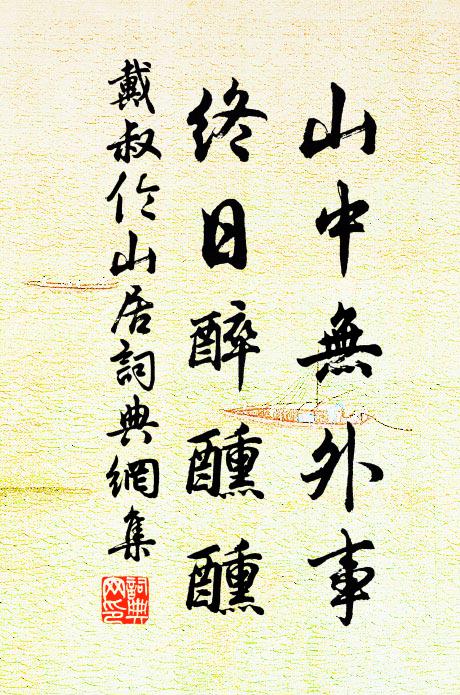 山中無外事
終日醉醺醺
戴叔伦山居詞典網集
詞典网印